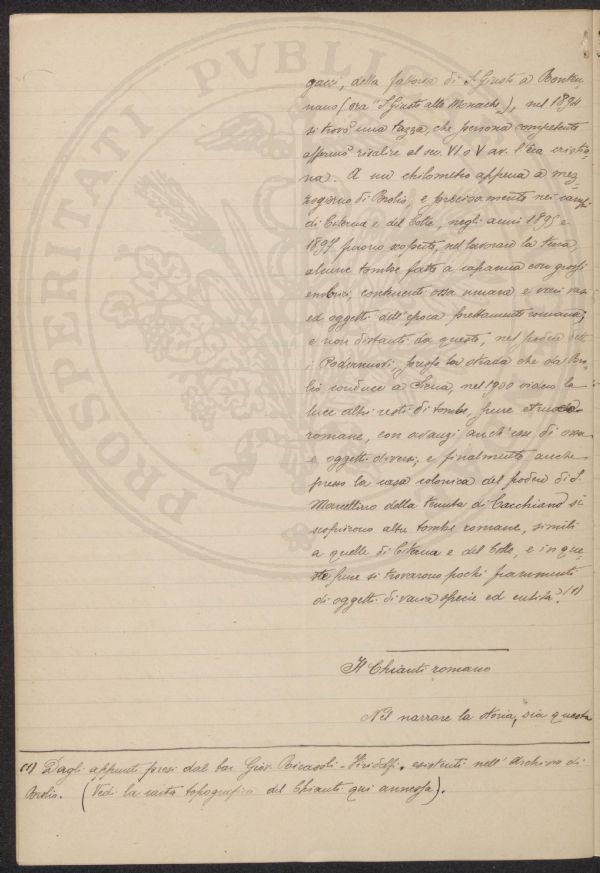 PROSPERITATI PVBLICAE
gacci, della fattoria di S. Giusto a Renten-
nano (ora "S. Giusto alle Monache"), nel 1894
si trovò una tazza, che persona competente
affermò risalire al sec. VI o V av. l'èra cristia-
na. A un chilometro appena a mez-
zogiorno di Brolio, e precisamente nei campi
di Citerna e del Colle, negli anni 1895 e
1897 furono scoperte, nel lavorare la terra,
alcune tombe fatte a capanna con grossi
embrici, contenenti ossa umane e vari vasi
ed oggetti dell'epoca prettamente romana;
e non distanti da queste, nel podere detto
i Podernuovi, presso la strada che da Bro-
lio conduce a Siena, nel 1900 videro la
luce altri resti di tombe, pure
romane, con avanzi anch'esse di ossa
e oggetti diversi; e finalmente anche
presso la casa colonica del podere di S.
Marcellino della tenuta di Cacchiano si
scoprirono altre tombe romane, simili
a quelle di Citerna e del Colle, e in que-
ste pure si trovarono pochi frammenti
di oggetti di varia specie ed entità. (1)
Il Chianti romano
Nel narrare la storia, sia questa
(1) Dagli appunti presi dal bar. Giov. Ricasoli-Firidolfi, esistenti nell'Archivio di
Brolio. (Vedi la carta topografica del Chianti qui annessa).